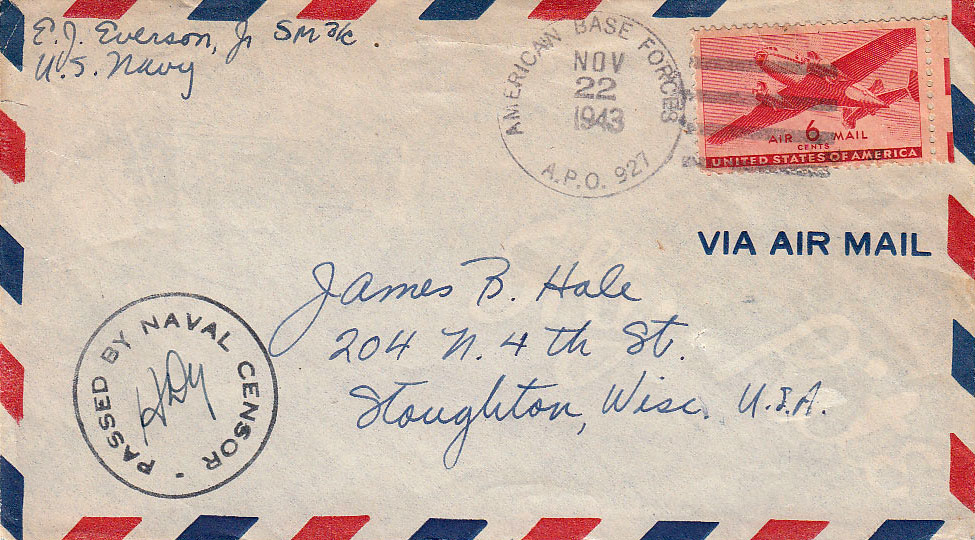 E.J. Everson, Jr SM 3/c.
U.S. Navy
AMERICAN BASE FORCES
NOV
22
1943
A.P.O. 927
AIR 6 MAIL
CENTS
UNITED STATES OF AMERICA
VIA AIR MAIL
James B. Hale
204 N. 4th St.
Stoughton, Wisc. U.S.A.
PASSED BY NAVAL CENSOR